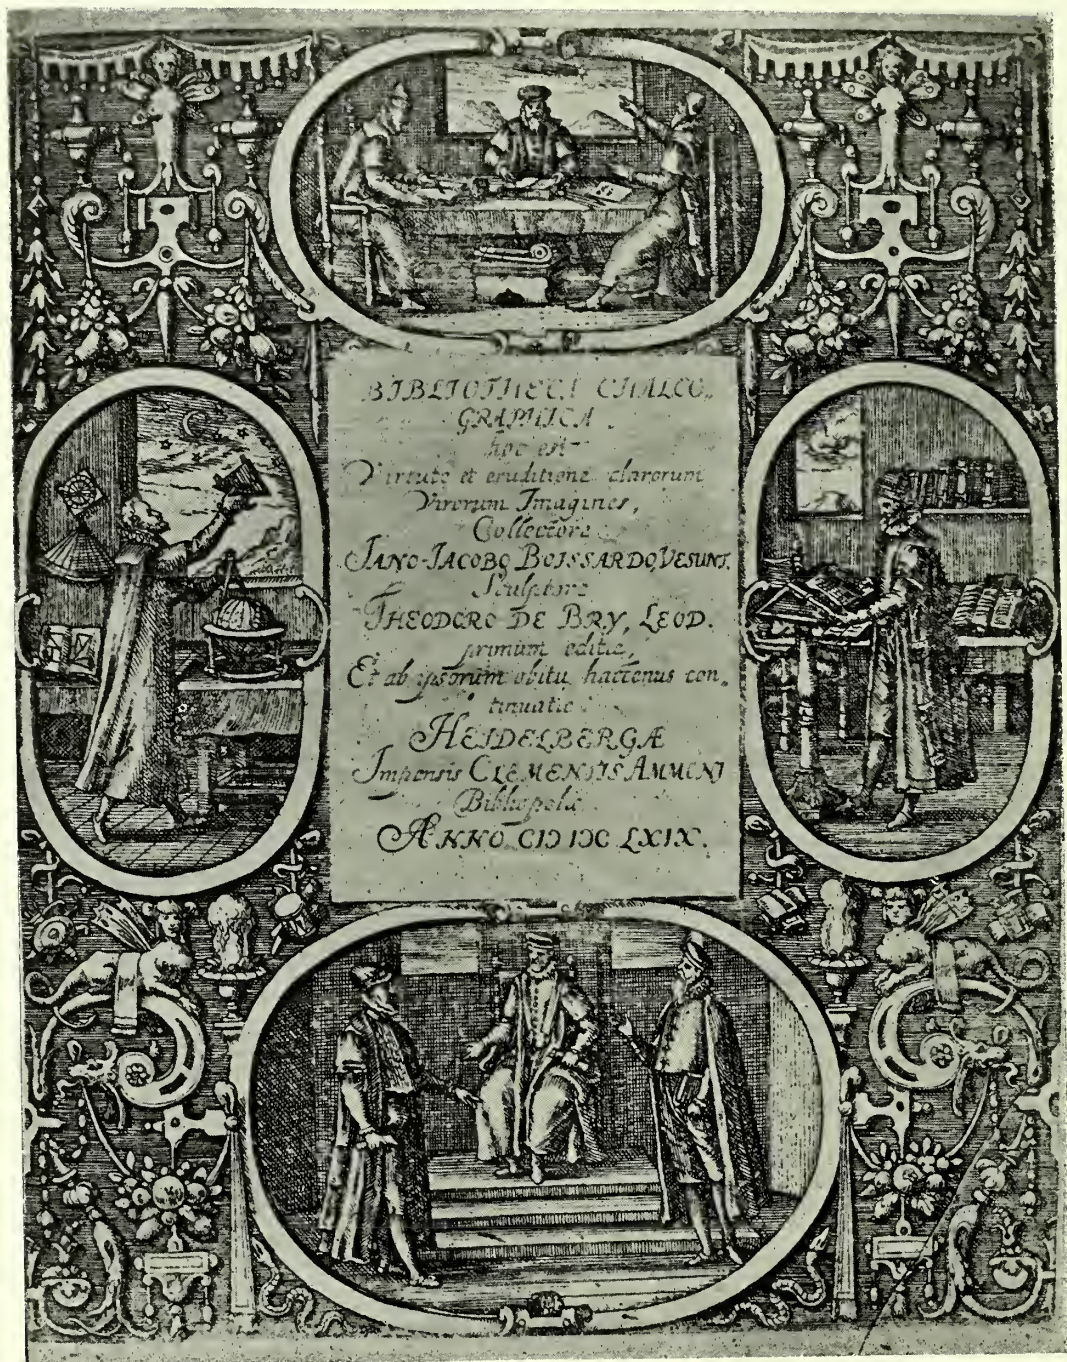 BIBLIOTHECA CHALCO„
GRAPHICA
hoc est
Virtute et eruditione clarorum
Virorum Imagines,
Collectore
IANO-IACOBO BOISSARDO, VESUNT.
Sculptore
THEODORO DE BRY, LEOD.
primum editæ,
Et ab ipsorum obitu hactenus con„
tinuatæ
HEIDELBERGÆ
Impensis CLEMENTIS AMMONI
Bibliopolæ
ANNO CIƆ IƆC LXIX.